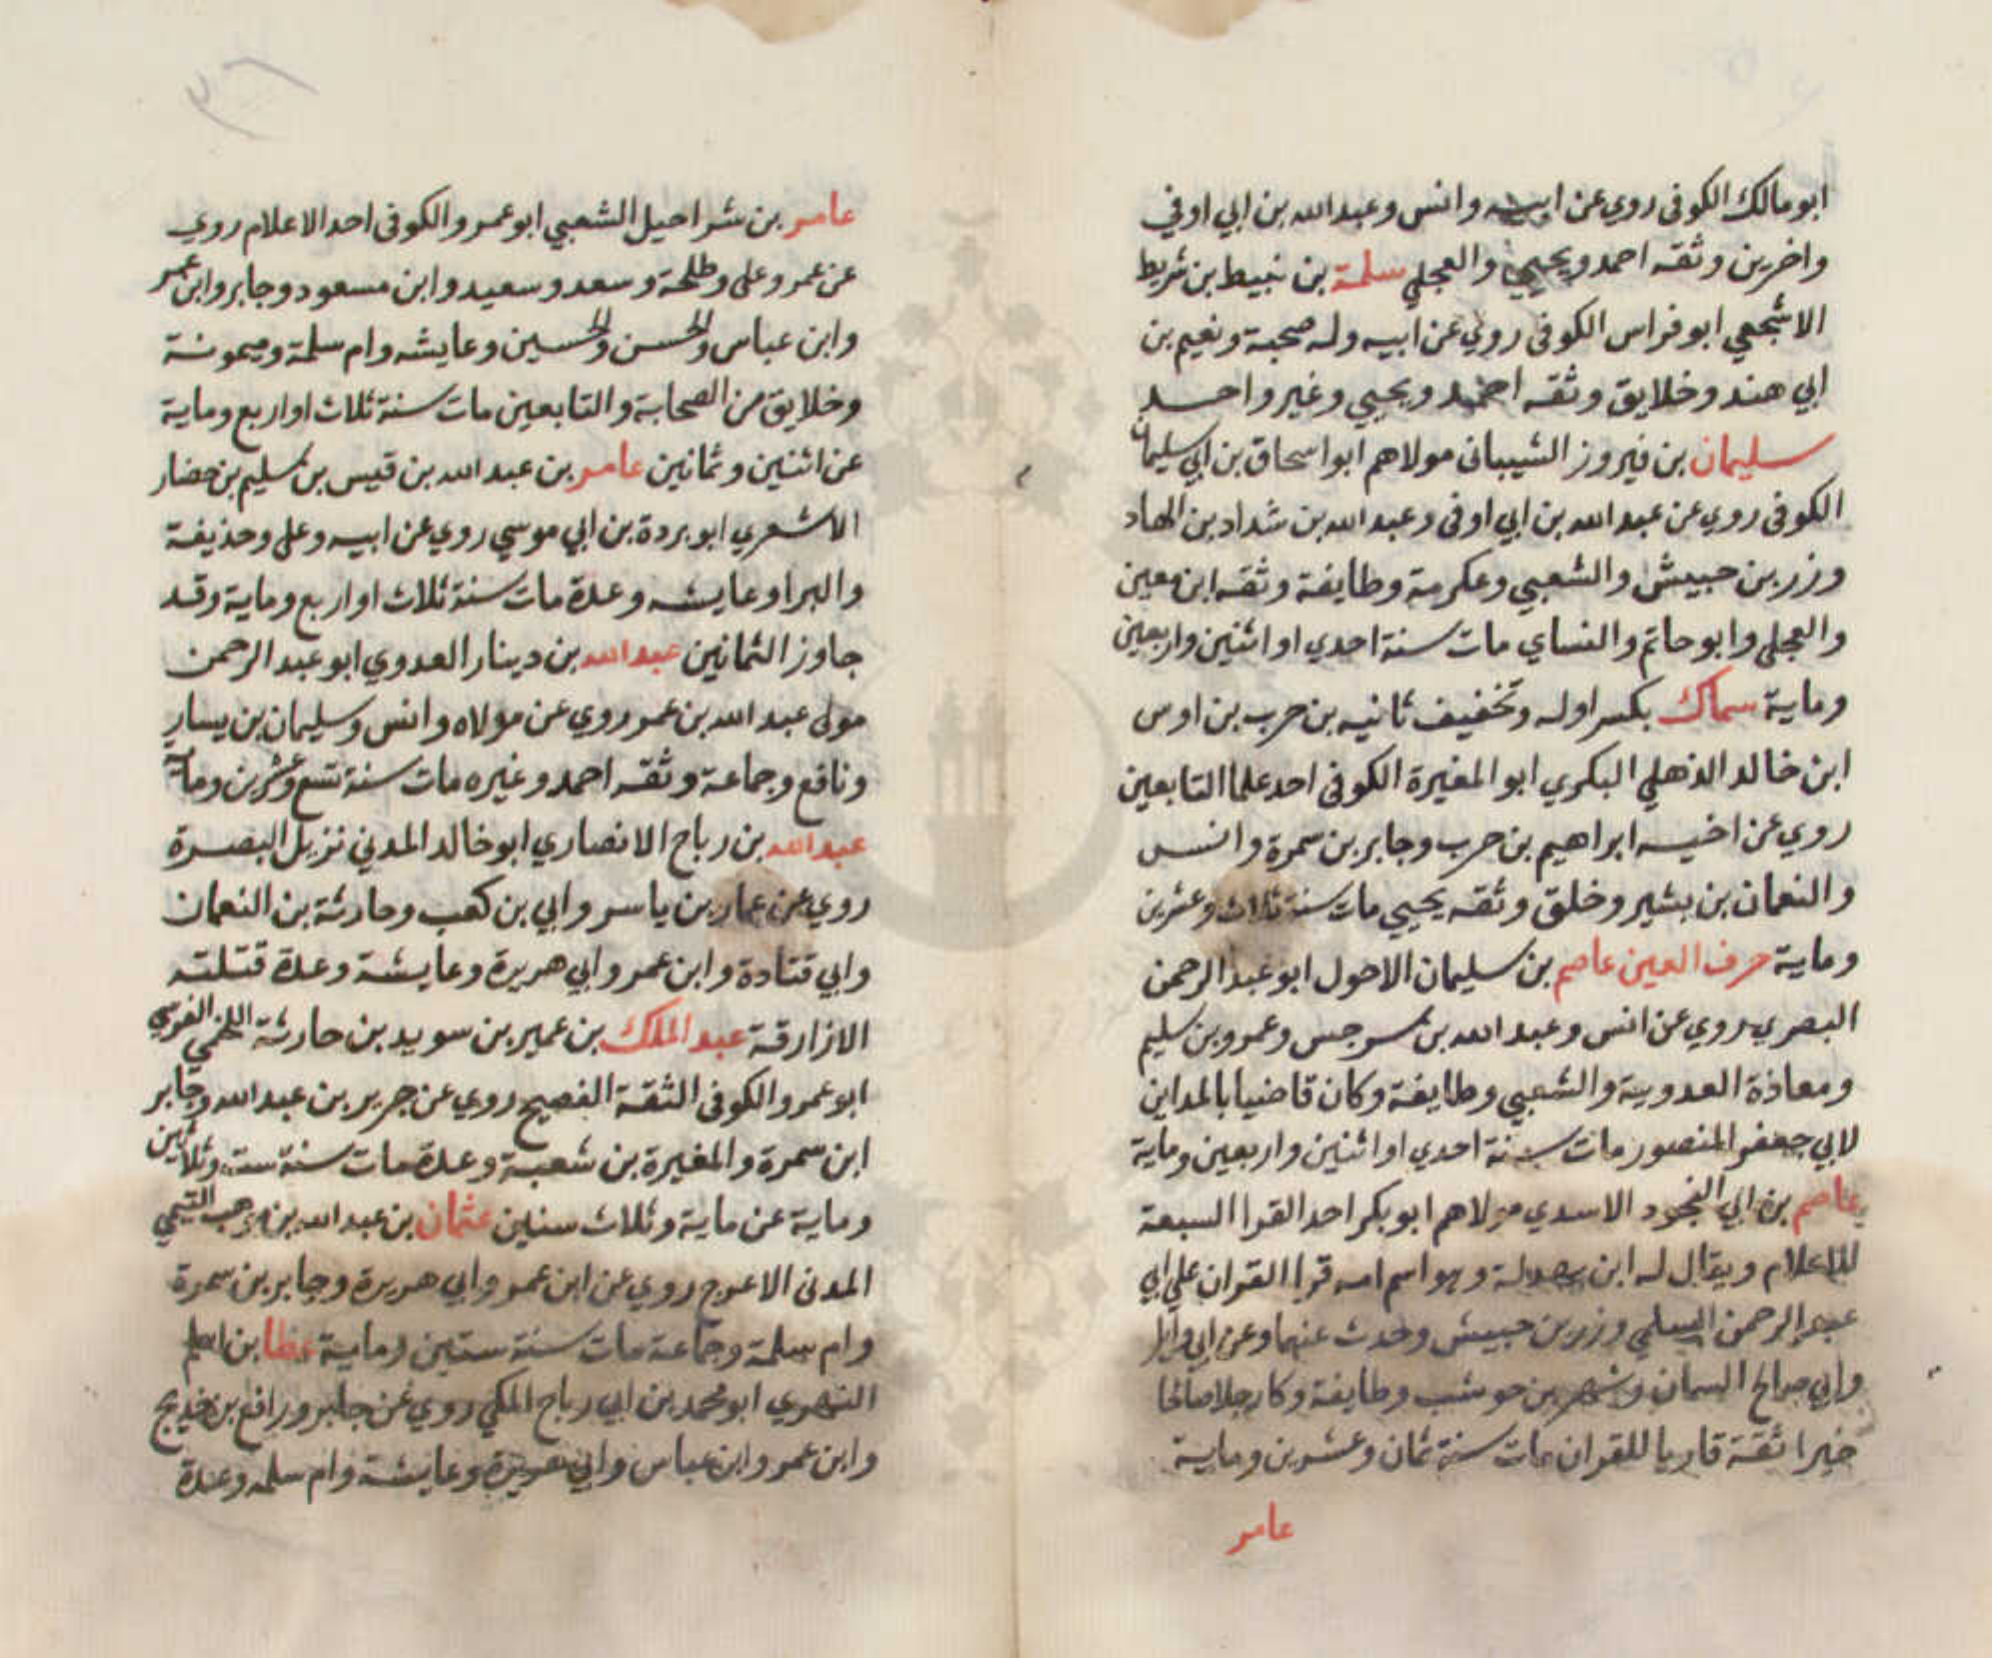 ابو مالك الكوفى روي عن ابيه وانس وعبد الله بن ابي اوفي
واخرين وثقه احمد ويحيي والعجلي سلمة بن نبيط بن شريط
الاشجعي ابو فراس الكوفى روي عن ابيه وله صحبة ونعيم بن
ابي هند وخلايق وثقه احمد ويحيي وغير واحد
سليمان بن فيروز الشيبانى مولاهم ابو اسحاق بن ابي سليمان
الكوفى روي عن عبد الله بن ابي اوفى وعبد الله بن شداد بن الهاد
وزر بن حبيش والشعبي وعكرمة وطايفة وثقه ابن معين
والعجلى وابو حاتم والنساي مات سنة احدي او اثنين واربعين
وماية سماك بكسر اوله وتخفيف ثانيه بن حرب بن اوس
ابن خالد الذهلي البكري ابو المغيرة الكوفى احد علما التابعين
روي عن اخيه ابراهيم بن حرب وجابر بن سمرة وانس
والنعمان بن بشير وخلق وثقه يحيي مات سنة ثلاث وعشرين
وماية حرف العين عاصم بن سليمان الاحول ابو عبد الرحمن
البصري روي عن انس وعبد الله بن سرجس وعمرو بن سليم
ومعاذة العدوية والشعبي وطايفة وكان قاضيا بالمداين
لابي جعفر المنصور مات سنة احدي او اثنين واربعين وماية
عاصم بن ابي النجود الاسدي مولاهم ابو بكر احد القرا السبعة
الاعلام ويقال له ابن بهدلة وهو اسم امه قرا القران علي ابي
عبد الرحمن السلمي وزر بن حبيش وحدث عنهما وعن ابي وايل
وابي صالح السمان وشهر بن حوشب وطايفة وكا رجلا صالحا
خيرا ثقة قاريا للقران مات سنة ثمان وعشرين وماية
عامر
عامر بن شراحيل الشعبي ابو عمرو الكوفى احد الاعلام روي
عن عمر وعلى وطلحة وسعد وسعيد وابن مسعود وجابر وابن عمر
وابن عباس والحسن والحسين وعايشه وام سلمة وميمونة
وخلايق من الصحابة والتابعين مات سنة ثلاث او اربع وماية
عن اثنين وثمانين عامر بن عبد الله بن قيس بن سليم بن حضار
الاشعري ابو بردة بن ابي موسي روي عن ابيه وعلى وحذيفة
والبرا وعايشه وعدة مات سنة ثلاث او اربع وماية وقد
جاوز الثمانين عبد الله بن دينار العدوي ابو عبد الرحمن
مولى عبد الله بن عمر روي عن مولاه وانس وسليمان بن يسار
ونافع وجماعة وثقه احمد وغيره مات سنة تسع وعشرين وماية
عبد الله بن رباح الانصاري ابو خالد المدني نزيل البصرة
روي عن عمار بن ياسر وابي بن كعب وحارثة بن النعمان
وابي قتادة وابن عمر وابي هريرة وعايشة وعدة قتلته
الازارقة عبد الملك بن عمير بن سويد بن حارثة اللخمي الفرسي
ابو عمرو الكوفى الثقة الفصيح روي عن جرير بن عبد الله وجابر
ابن سمرة والمغيرة بن شعبة وعدة مات سنة ست وثلاثين
وماية عن ماية وثلاث سنين عثمان بن عبد الله بن موهب التيمي
المدنى الاعرج روي عن ابن عمر وابي هريرة وجابر بن سمرة
وام سلمة وجماعة مات سنة ستين وماية عطا بن اسلم
الفهري ابو محمد بن ابي رباح المكي روي عن جابر ورافع بن خديج
وابن عمر وابن عباس وابي هريرة وعايشة وام سلمه وعدة